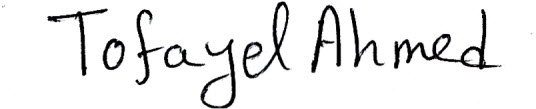 Tofayel Ahmed